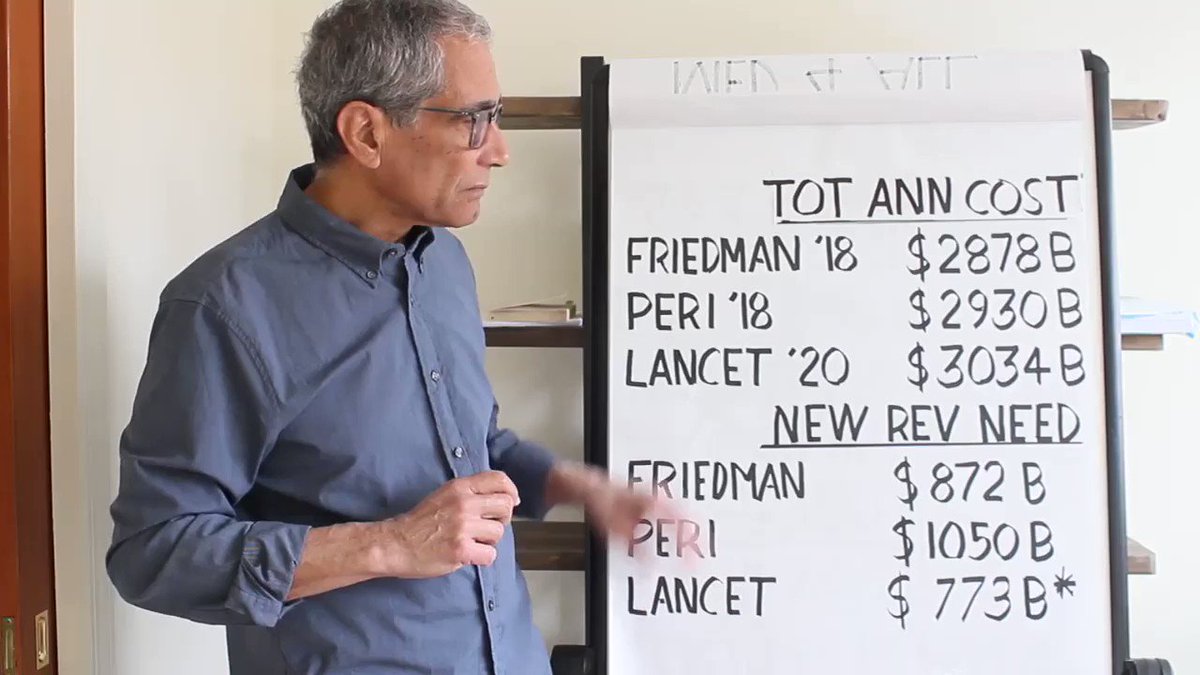 MED 4 ALL
TOT ANN COST
FRIEDMAN '18 $2878 B
PERI '18 $2930 B
LANCET '20 $3034 B
NEW REV NEED
FRIEDMAN $872 B
PERI $1050 B
LANCET $773 B*